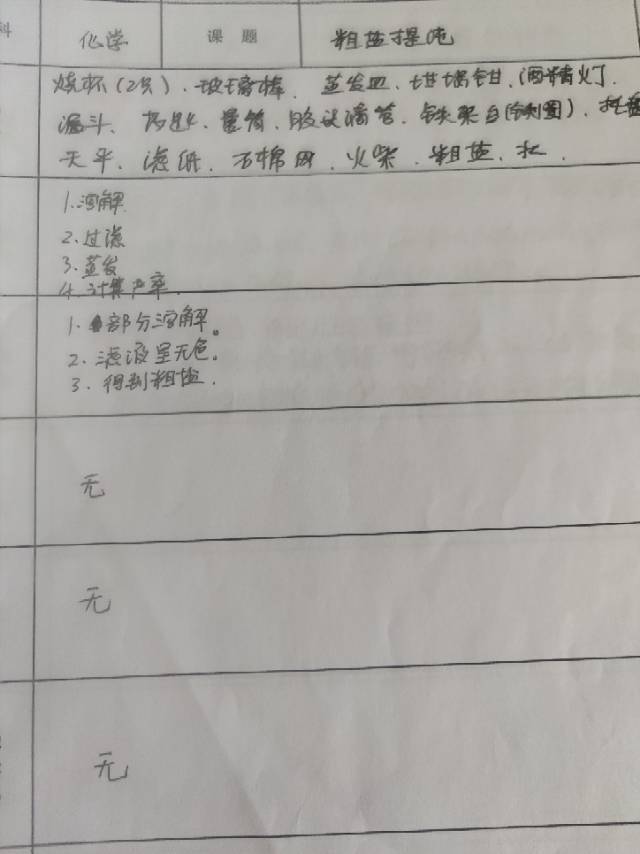 科 化学 课题 粗盐提纯
烧杯(2只)、玻璃棒、蒸发皿、坩埚钳、酒精灯、
漏斗、药匙、量筒、胶头滴管、铁架台(铁圈)、托盘
天平、滤纸、石棉网、火柴、粗盐、水、
1.溶解
2.过滤
3.蒸发
4.计算产率.
1.部分溶解。
2.滤液呈无色。
3.得到粗盐.
无
无
无